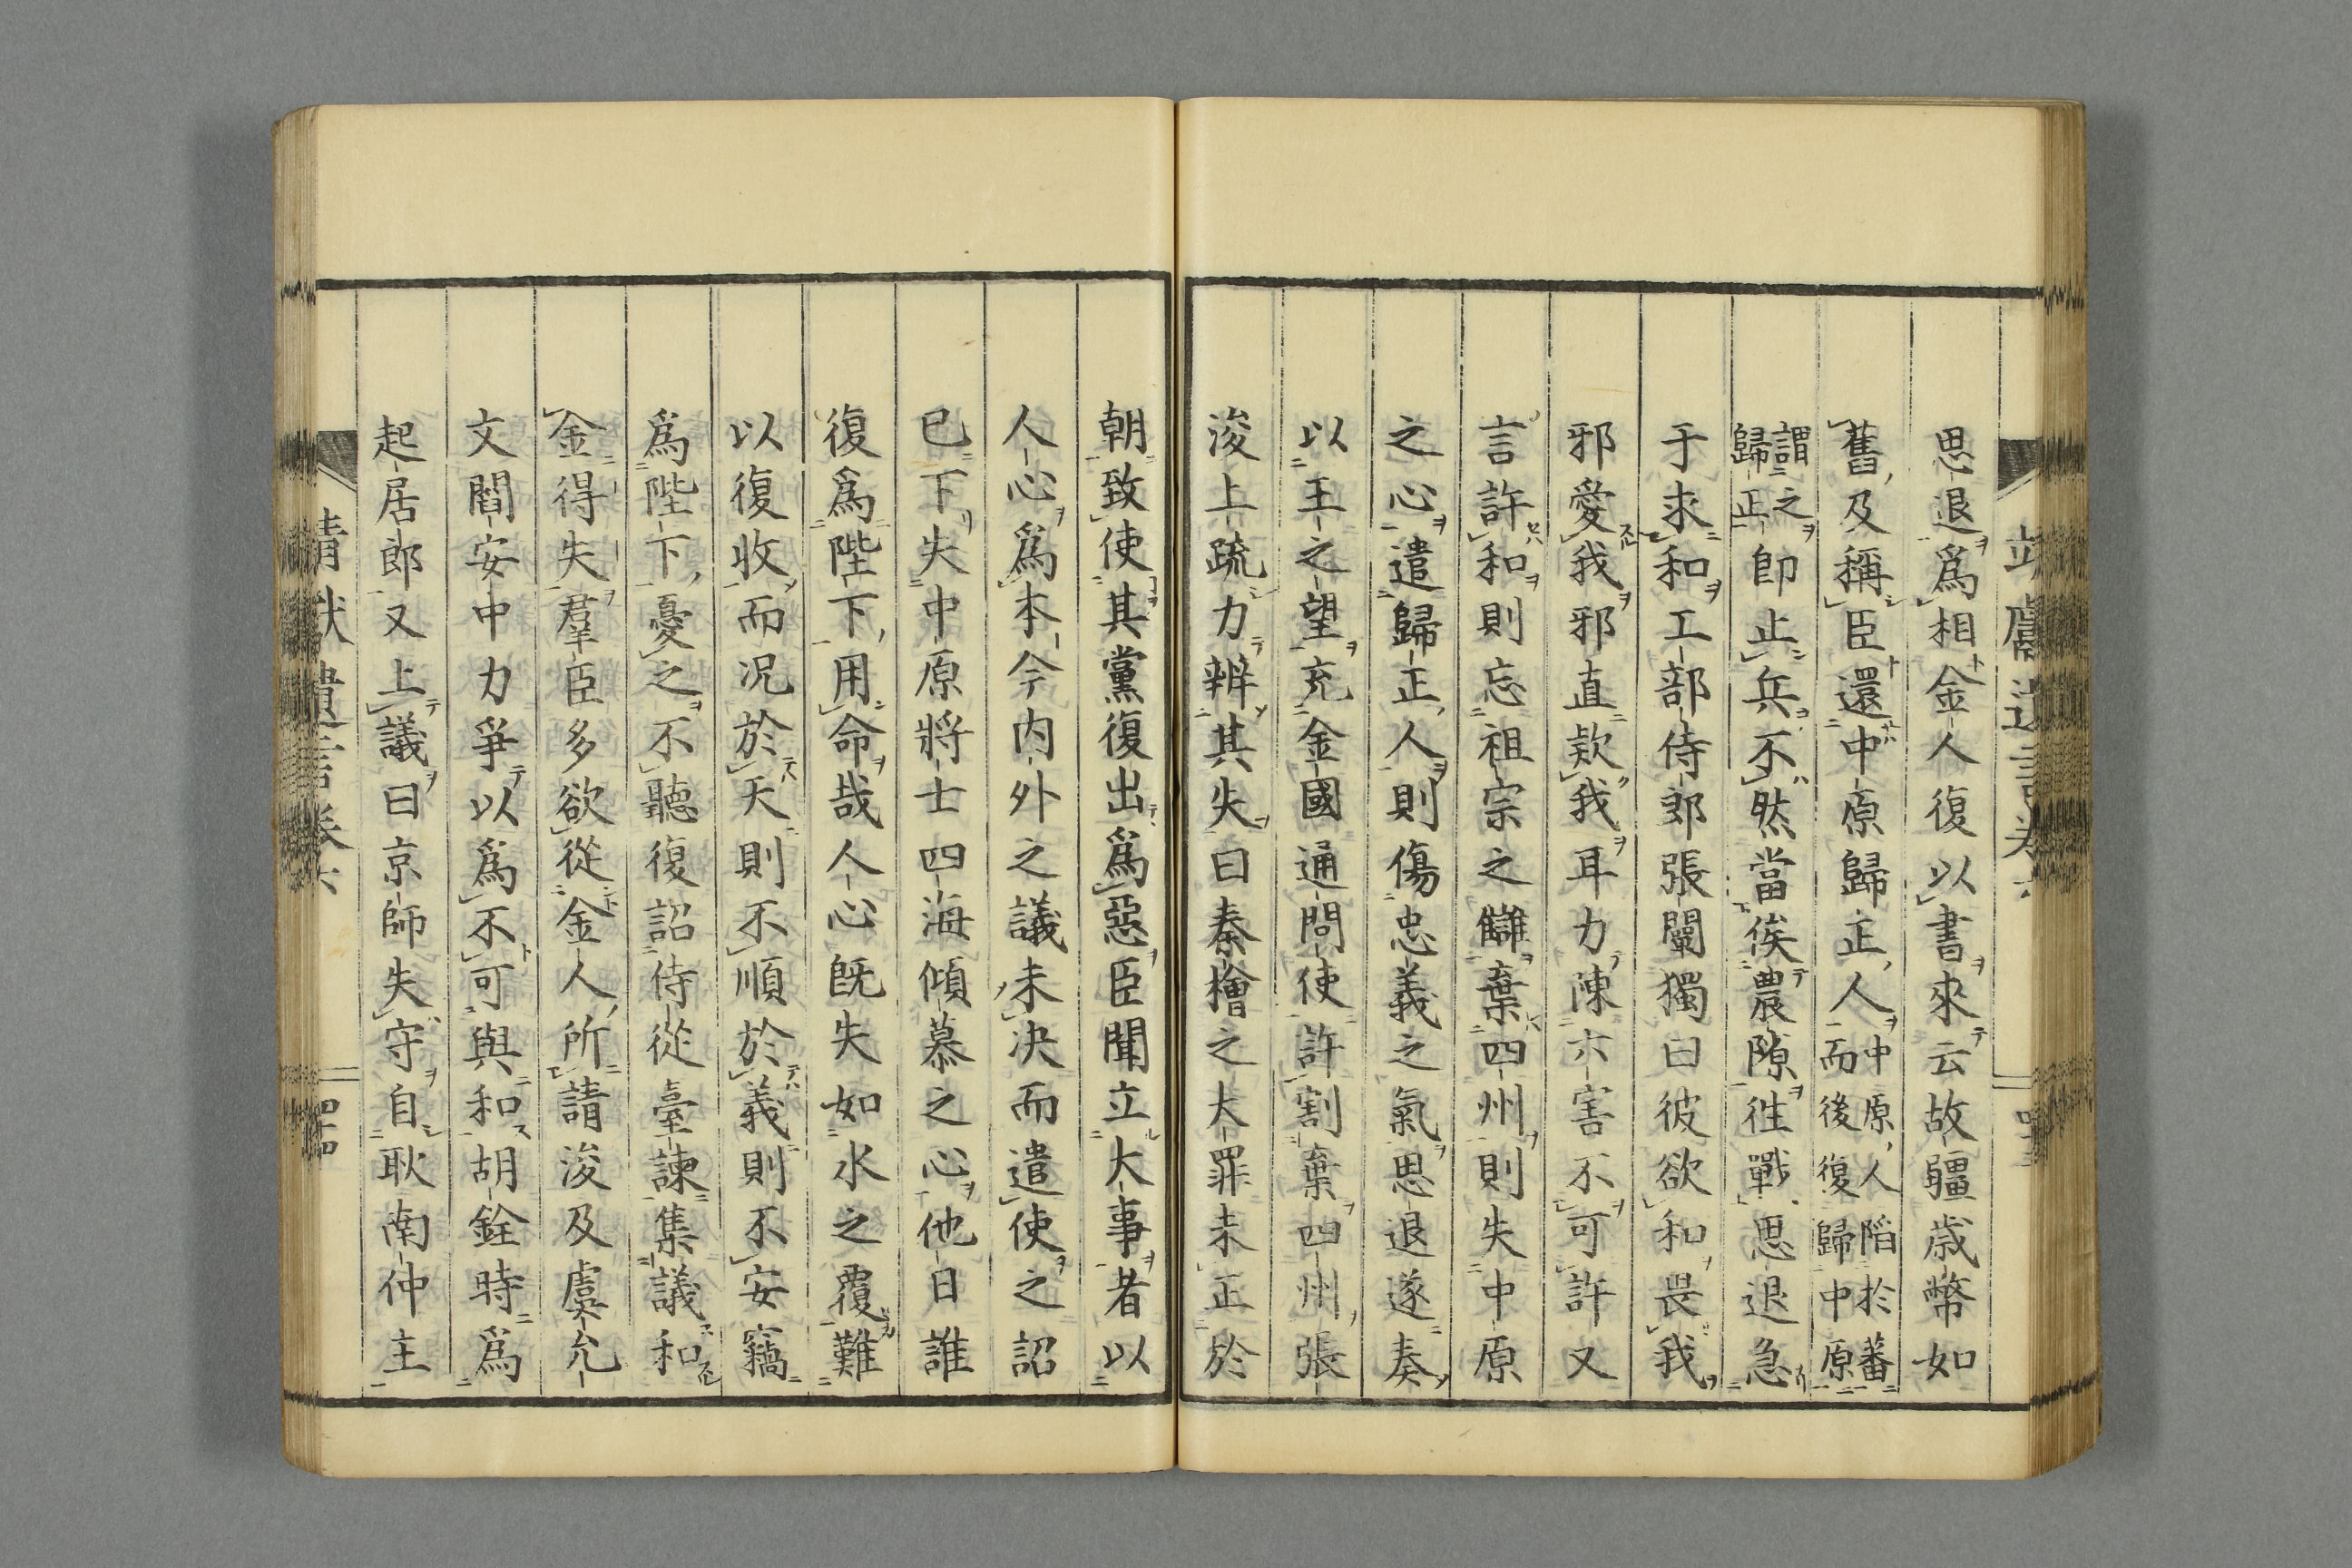 思退爲相金人復以書來云故疆歳幣如
舊及稱臣還中原歸正人中原人陷於蕃而後復歸中原
謂之歸正即止兵不然當俟農隙徃戰思退急
于求和工部侍郎張闡獨曰彼欲和畏我
邪愛我邪直欵我耳力陳六害不可許又
言許和則忘祖宗之讎棄四州則失中原
之心遣歸正人則傷忠義之氣思退遂奏
以王之望充金國通問使許割棄四州張
浚上疏力辨其失曰秦檜之大罪未正於
朝致使其黨復出爲惡臣聞立大事者以
人心爲本今内外之議未決而遣使之詔
已下失中原將士四海傾慕之心他日誰
復爲陛下用命哉人心既失如水之覆難
以復收而况於天則不順於義則不安竊
爲陛下憂之不聽復詔侍從臺諫集議和
金得失羣臣多欲從金人所請浚及虞允
文閻安中力爭以爲不可與和胡銓時爲
起居郎又上議曰京師失守自耿南仲主
靖獻遺言卷六